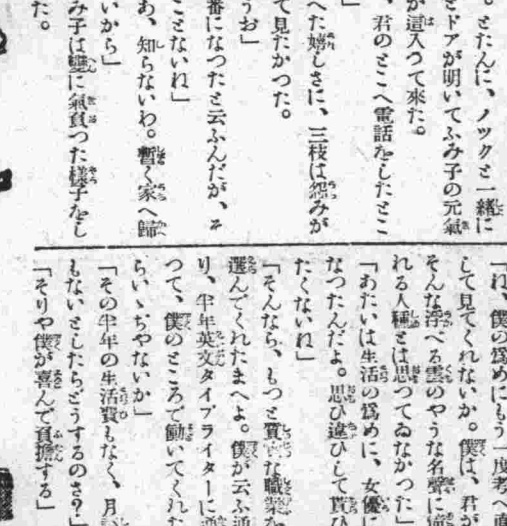 。とたんに、ノックと一緒に
とドアが明いてふみ子の元氣
が這入つて來た。
、君のとこへ電話をしたとこ
」
へた嬉しさに、三枝は怨みが
て見たかつた。
うお」
番になつたと云ふんだが、そ
ことないね」
あ、知らないわ。暫く家へ歸
いから」
み子は變に氣負つた樣子をし
た。
「ね、僕の爲めにもう一度考へ直
して見てくれないか。僕は、君が
そんな浮べる雲のやうな名聲に
れる人種とは思つてゐなかつた」
「あたいは生活の爲めに、女優
なつたんだよ。思ひ違ひして貰ひ
たくないね」
「そんなら、もつと質實な職業を
選んでくれたまへよ。僕が云ふ通
り、半年英文タイプライターに
つて、僕のところで働いてくれた
らいゝぢやないか」
「その半年の生活費もなく、月
もないとしたらどうするのさ?」
「そりや僕が喜んで負擔する」